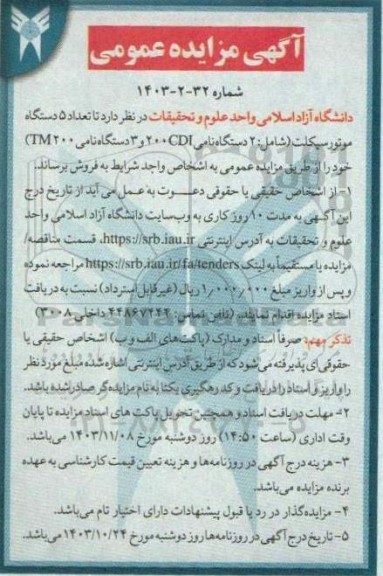 آگهی مزایده عمومی
شماره ۳۲-۲-۱۴۰۳
دانشگاه آزاد اسلامی واحد علوم و تحقیقات در نظر دارد تا تعداد ۵ دستگاه
موتورسیکلت (شامل: ۲ دستگاه نامی CDI ۲۰۰ و ۳ دستگاه نامی TM ۲۰۰)
خود را از طریق مزایده عمومی به اشخاص واجد شرایط به فروش برساند.
۱- از اشخاص حقیقی یا حقوقی دعوت به عمل می آید از تاریخ درج
این آگهی به مدت ۱۰ روز کاری به وب‌سایت دانشگاه آزاد اسلامی واحد
علوم و تحقیقات به آدرس اینترنتی https://srb.iau.ir، قسمت مناقصه/
مزایده یا مستقیماً به لینک https://srb.iau.ir/fa/tenders مراجعه نموده
و پس از واریز مبلغ ۱٫۰۰۰٫۰۰۰ ریال (غیرقابل استرداد) نسبت به دریافت
اسناد مزایده اقدام نمایند. (تلفن تماس: ۴۴۸۶۷۴۴۲ داخلی ۳۰۰۸)
تذکر مهم: صرفاً اسناد و مدارک (پاکت‌های الف و ب) اشخاص حقیقی یا
حقوقی‌ای پذیرفته می‌شود که از طریق آدرس اینترنتی اشاره شده مبلغ مورد نظر
را واریز و اسناد را دریافت و کد رهگیری یکتا به نام مزایده‌گر صادر شده باشد.
۲- مهلت دریافت اسناد و همچنین تحویل پاکت های اسناد مزایده تا پایان
وقت اداری (ساعت ۱۴:۵۰) روز دوشنبه مورخ ۱۴۰۳/۱۱/۰۸ می‌باشد.
۳- هزینه درج آگهی در روزنامه‌ها و هزینه تعیین قیمت کارشناسی به عهده
برنده مزایده می‌باشد.
۴- مزایده‌گذار در رد یا قبول پیشنهادات دارای اختیار تام می‌باشد.
۵- تاریخ درج آگهی در روزنامه‌ها روز دوشنبه مورخ ۱۴۰۳/۱۰/۲۴ می‌باشد.